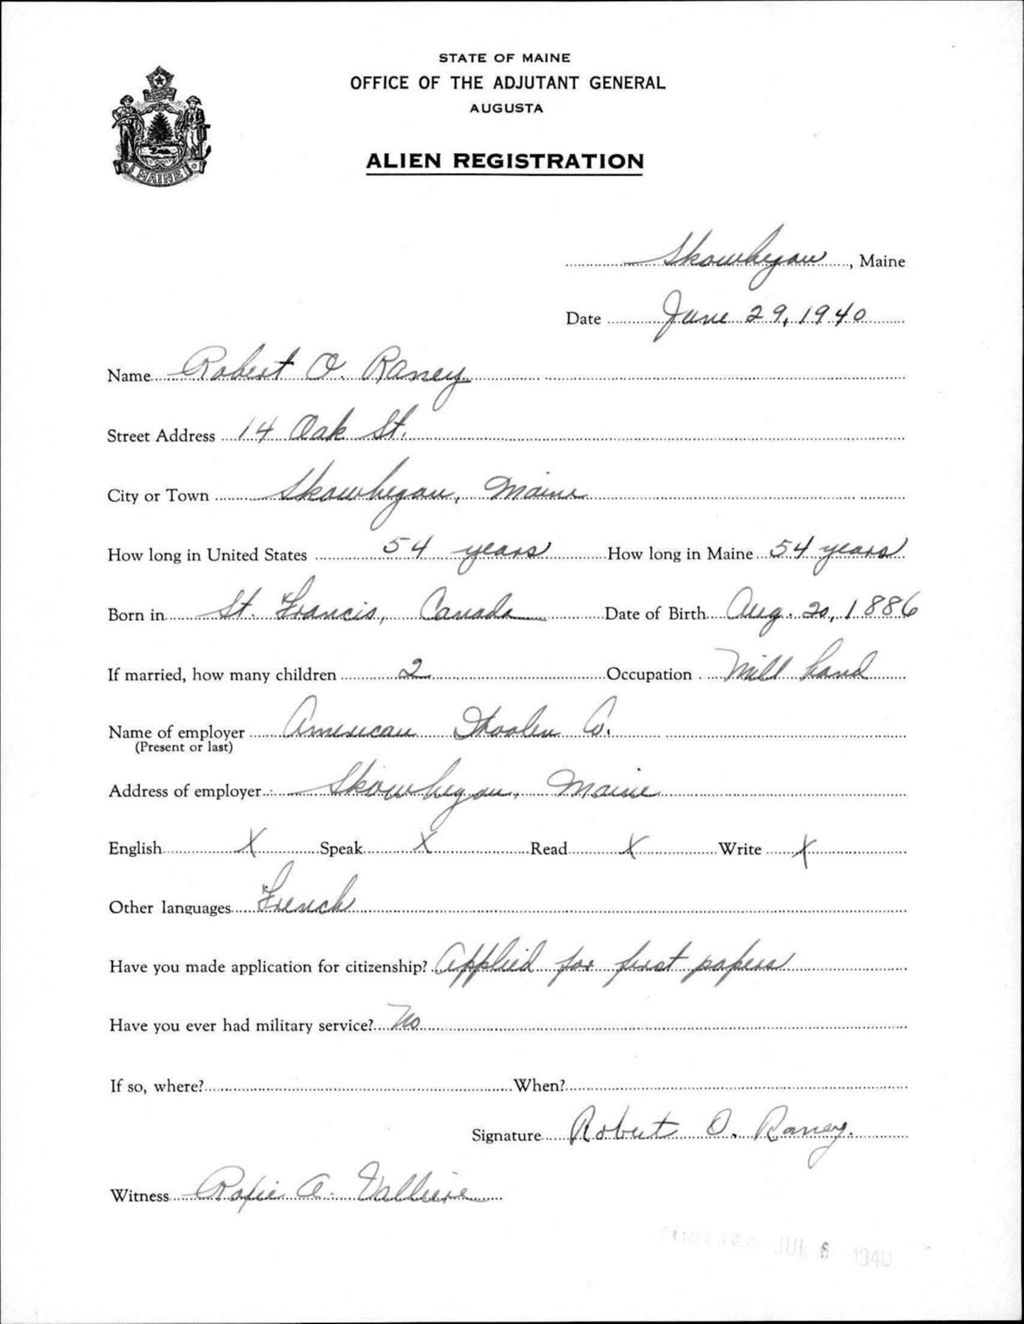 STATE OF MAINE
OFFICE OF THE ADJUTANT GENERAL
AUGUSTA
ALIEN REGISTRATION
MAINE
Skowhegan, Maine
Date June 29, 1940
Name Robert O. Raney
Street Address 14 Oak St.
City or Town Skowhegan, Maine
How long in United States 54 years How long in Maine 54 years
Born in St. Francis, Canada Date of Birth Aug. 20, 1886
If married, how many children 2 Occupation Mill hand
Name of employer American Woolen Co.
(Present or last)
Address of employer Skowhegan, Maine
English X Speak X Read X Write X
Other languages French
Have you made application for citizenship? Applied for first papers
Have you ever had military service? No
If so, where? When?
Signature Robert O. Raney.
Witness A. Valliere
JUL 6 1940